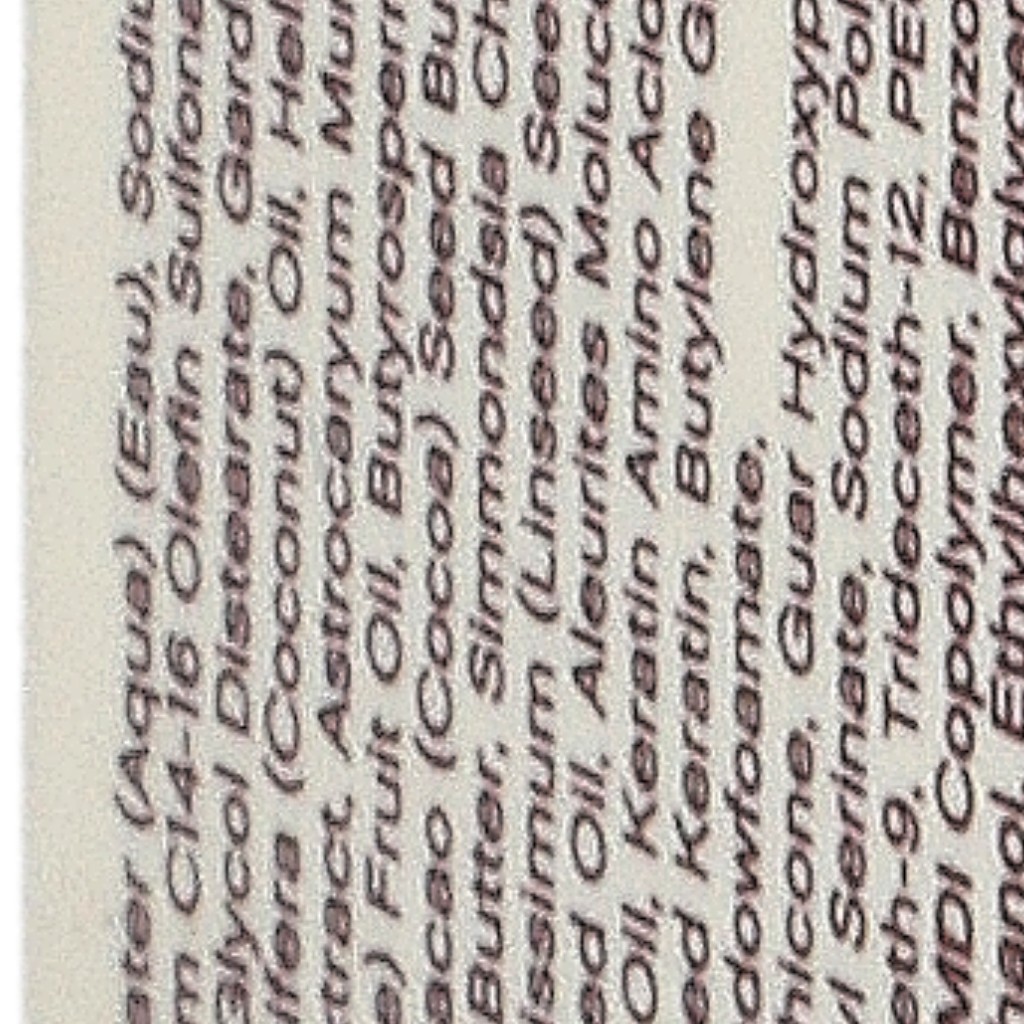 ater (Aqua) (Eau), Sodiu
m C14-16 Olefin Sulfone
Glycol Distearate, Gard
ifera (Coconut) Oil, Hel
tract, Astrocaryum Mur
e) Fruit Oil, Butyrosperm
acao (Cocoa) Seed Bu
Butter, Simmondsia Ch
issimum (Linseed) See
ed Oil, Aleurites Moluco
Oil, Keratin Amino Acid
ed Keratin, Butylene G
dowfoamate,
hicone, Guar Hydroxyp
yl Serinate, Sodium Pol
eth-9, Trideceth-12, PE
MDI Copolymer, Benzo
hanol, Ethylhexylglycer